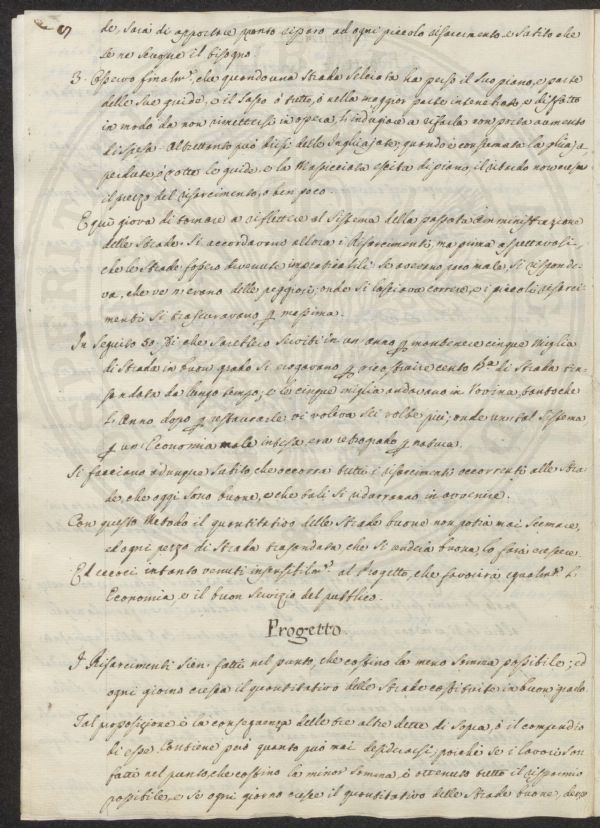 de, sarà di apportare pronto riparo ad ogni piccolo risarcimento, e subito che
se ne scuopra il bisogno.
3. Osservo finalm.e, che quando una Strada Selciata ha perso il suo piano, e parte
delle sue guide, e il sasso è tutto, ò nella maggior parte intenebrato, e disfatto
in modo da non rimettersi in opera, l'indugiare a rifarla non porta aumento
di spesa. Altrettanto può dirsi delle Inghiajate, quando è consumata la ghiaja
perdute, ò rotte le guide, e la Massicciata escita di piano, il ritardo non cresce
il prezzo del risarcimento, o ben poco.
E qui giova di tornare a riflettere al Sistema della passata Amministrazione
delle Strade. Si accordavano allora i Risarcimenti, ma prima aspettavasi,
che le Strade fossero divenute impraticabili. Se avevano poco male, si rispondeva,
che ve n'erano delle peggiori; onde si lasciava correre, e i piccoli risarcimenti
si trascuravano p massima.
In seguito di che sarebbero serviti in un anno p mantenere cinque miglia
di Strada in buon grado si erogavano p ricostruire cento B.a di Strada tra-
sandata da lungo tempo; e le cinque miglia andavano in rovina, tantoche
l'Anno dopo p restaurarle vi voleva sei volte più; onde un tal Sistema
p un'Economia male intesa, era retrogrado p natura.
Si facciano adunque subito, che occorra tutti i risarcimenti occorrenti alle Stra-
de, che oggi sono buone, e che tali si ridurranno in avvenire.
Con questo Metodo il quantitativo delle Strade buone non potrà mai scemare,
ed ogni pezzo di Strada trasandata, che si renderà buona lo farà crescere.
Ed eccoci intanto venuti insensibilm.e al Progetto, che favorirà egualm.e l'
Economia, e il buon Servizio del pubblico.
Progetto
I Risarcimenti sien fatti nel punto, che costino la meno somma possibile; ed
ogni giorno cresca il quantitativo delle Strade costituite in buon grado.
Tal proposizione è la conseguenza delle tre altre dette di sopra, ò il compendio
di esse. Contiene però quanto può mai desiderarsi; poiché se i lavori son
fatti nel punto, che costino la minor somma, è ottenuto tutto il risparmio
possibile, e se ogni giorno cresce il quantitativo delle Strade buone, deve